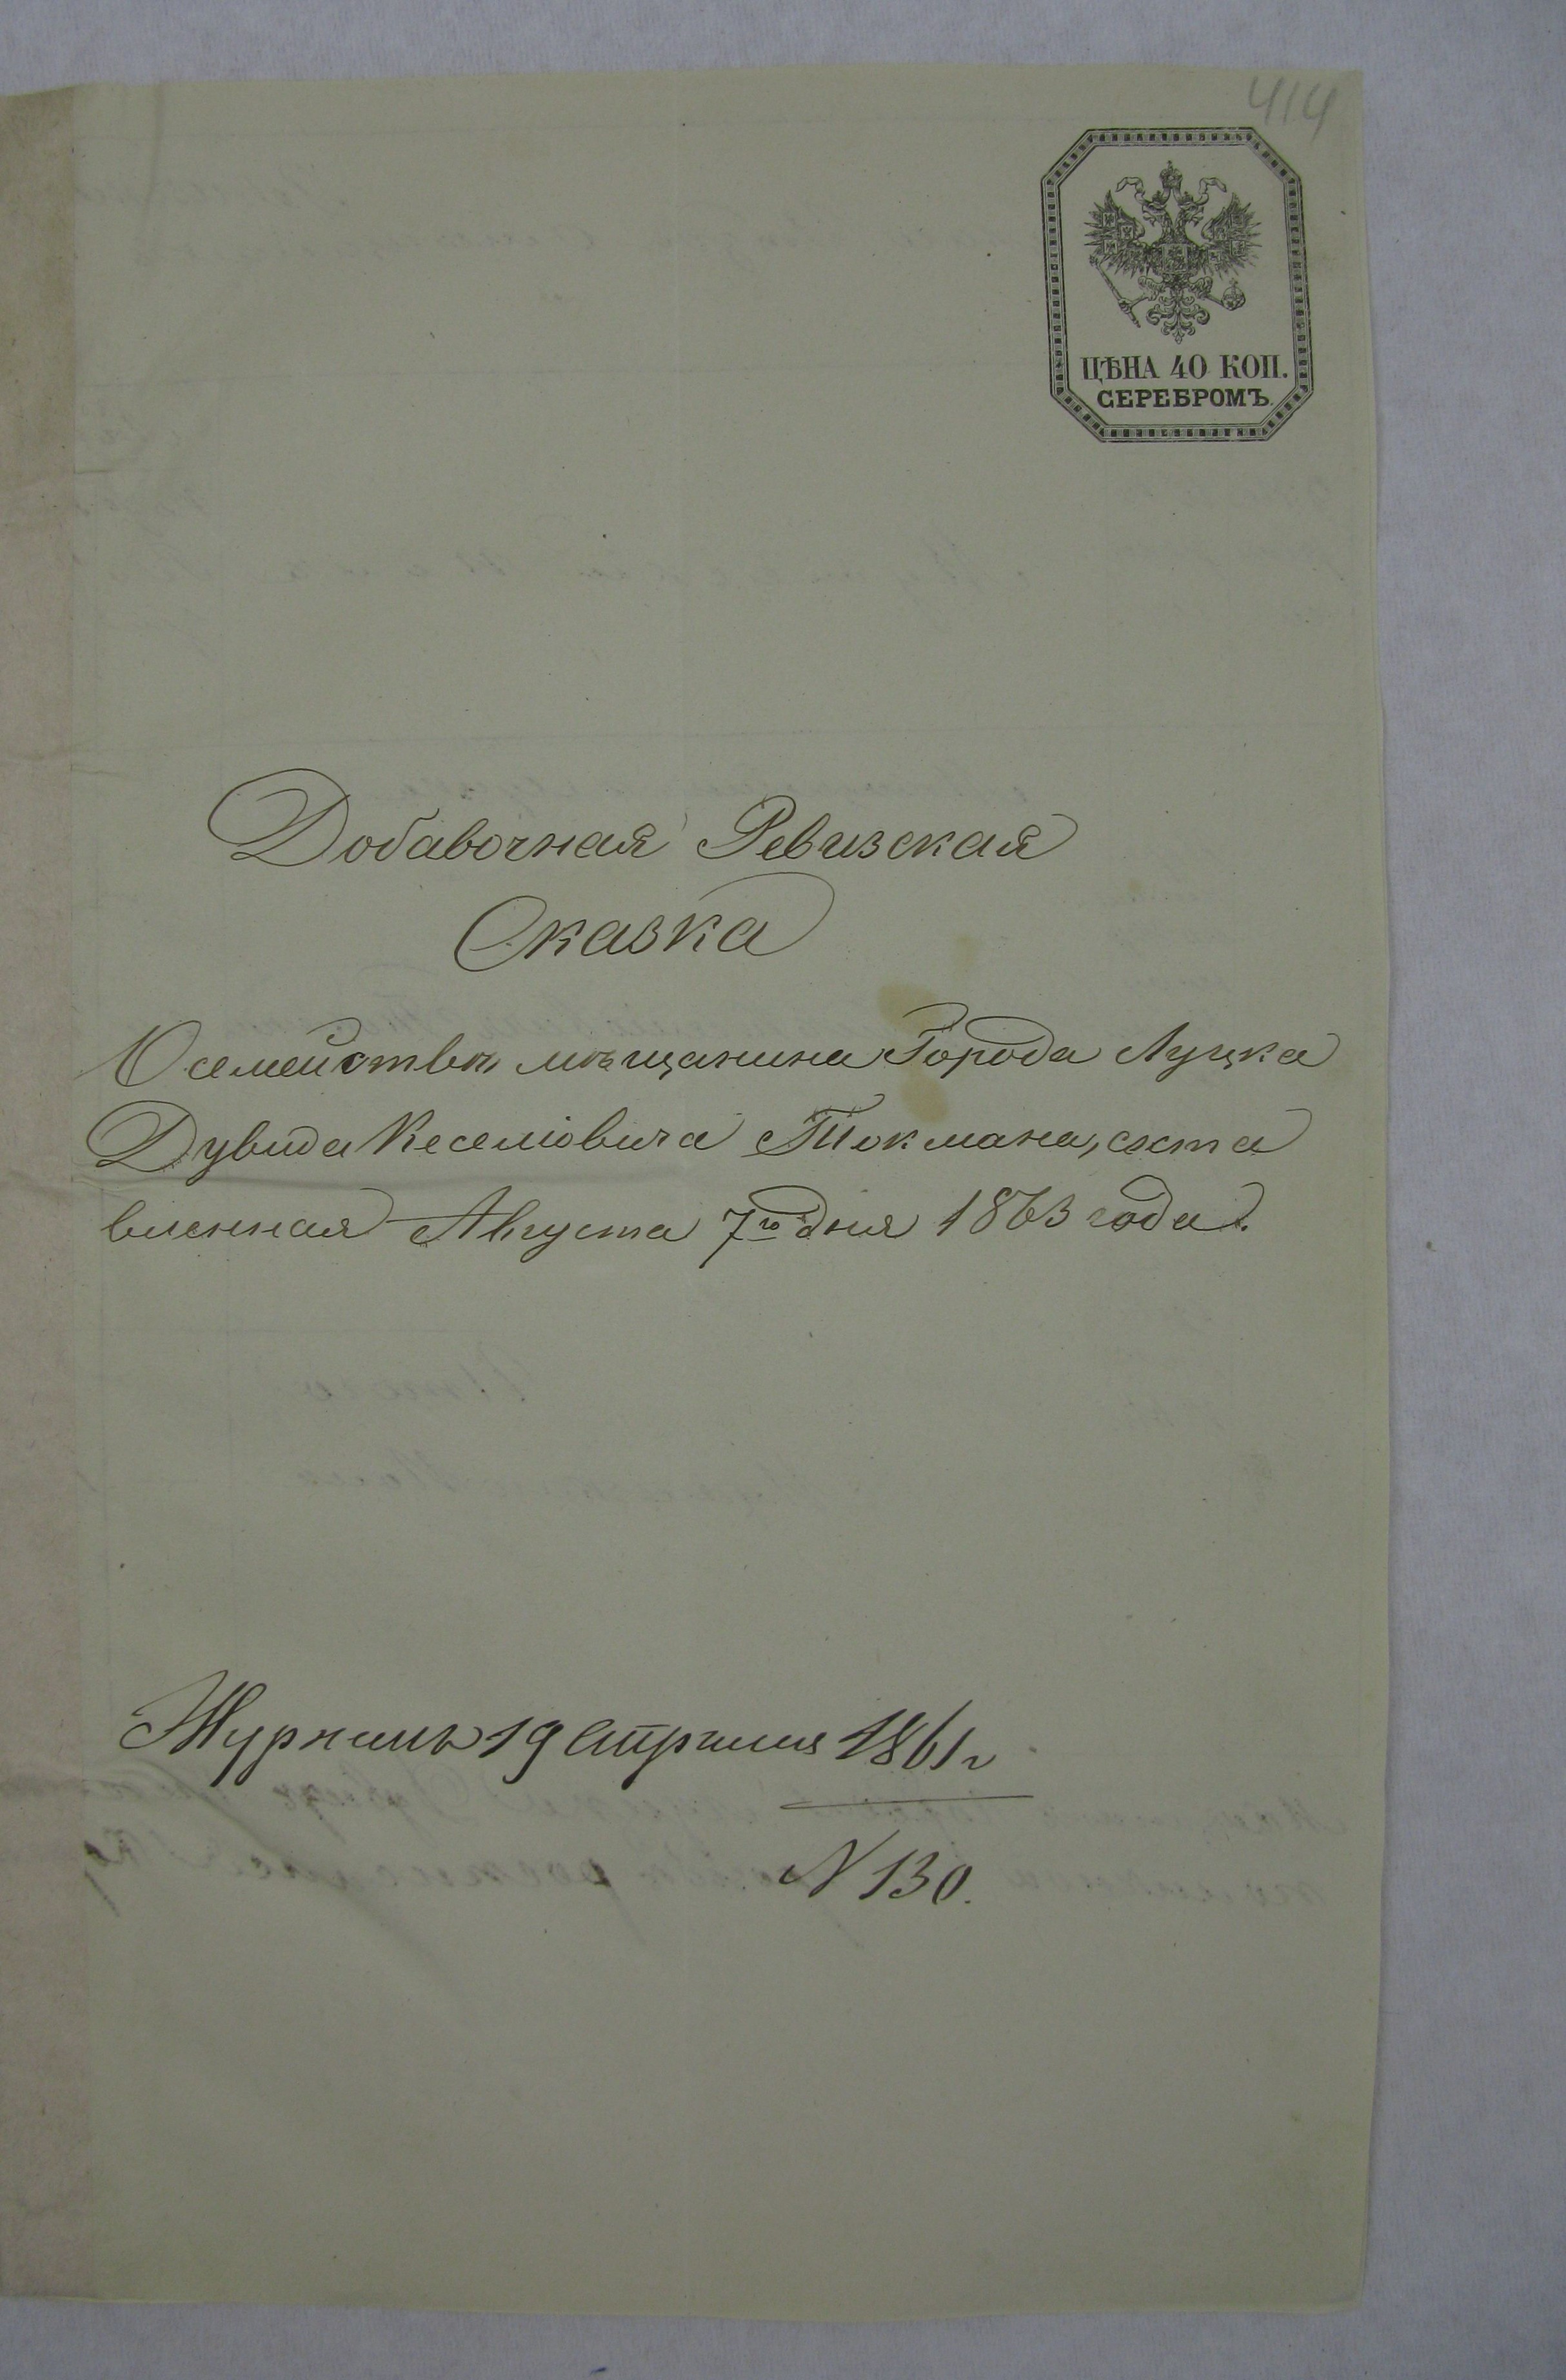 414
ЦѢНА 40 КОП.
СЕРЕБРОМЪ.
Добавочная Ревизская
Сказка
О семействѣ мѣщанина Города Луцка
Дувида Кеселіовича Токмана, соста
вленная Августа 7го дня 1863 года.
Журналъ 19 Апрѣля 1861 г
N 130.